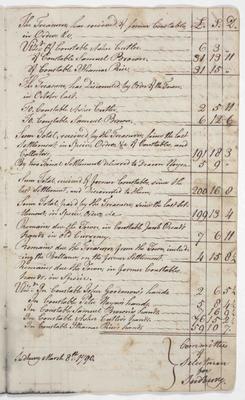 The Treasurer has received of former Constables, £. S. D.
in Orders &c.
Viz.t Of Constable Asher Cutler 6 3
Of Constable Samuel Brown 31 13 11
Of Constable Thomas Rice 31 15
The Treasurer has discounted by Order of the Town
in October last
To Constable Asher Cutler 2 5 11
To Constable Samuel Brown 6 12 6
Sum Total, received by the Treasurer, since the last
Settlement, in Specie, Orders, &c of Constables, and
Collector 191 18 3
By the former Settlement delivered to Deacon 5 9
Sum Total received of former Constables, since the
last Settlement, and discounted to them 200 16 8
Sum Total paid by the Treasurer, since the last Set-
tlement, in Specie, Orders &c 199 13 4
Remains due the Town, in Constable Jacob
hands in old Currency 7 6 11
Remains due the Treasurer, from the Town, includ-
ing the Ballance, in the former Settlement 4 15 8
Remains due the Town, in former Constables
hands, in Specie.
Viz.t In Constable John hands 2 6 5
In Constable Peter hands 5 8 4
In Constable Samuel Brown's hands
In Constable Asher Cutler's hands 76 15
In Constable Thomas Rice's hands 59 10 7
Sudbury March 8th 1790.
Committee
of
Selectmen
for
Sudbury